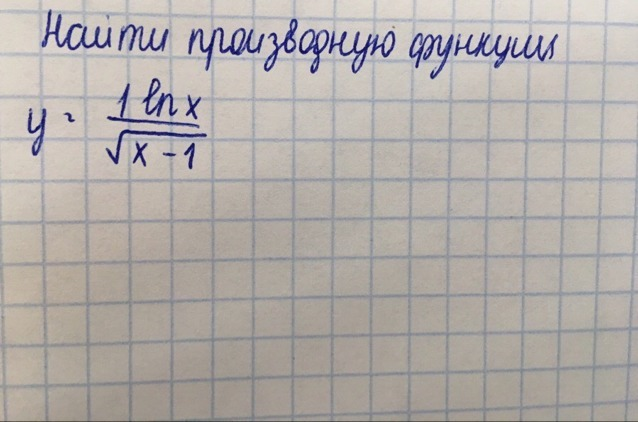 Найти производную функции
y = 1 ln x / √x - 1